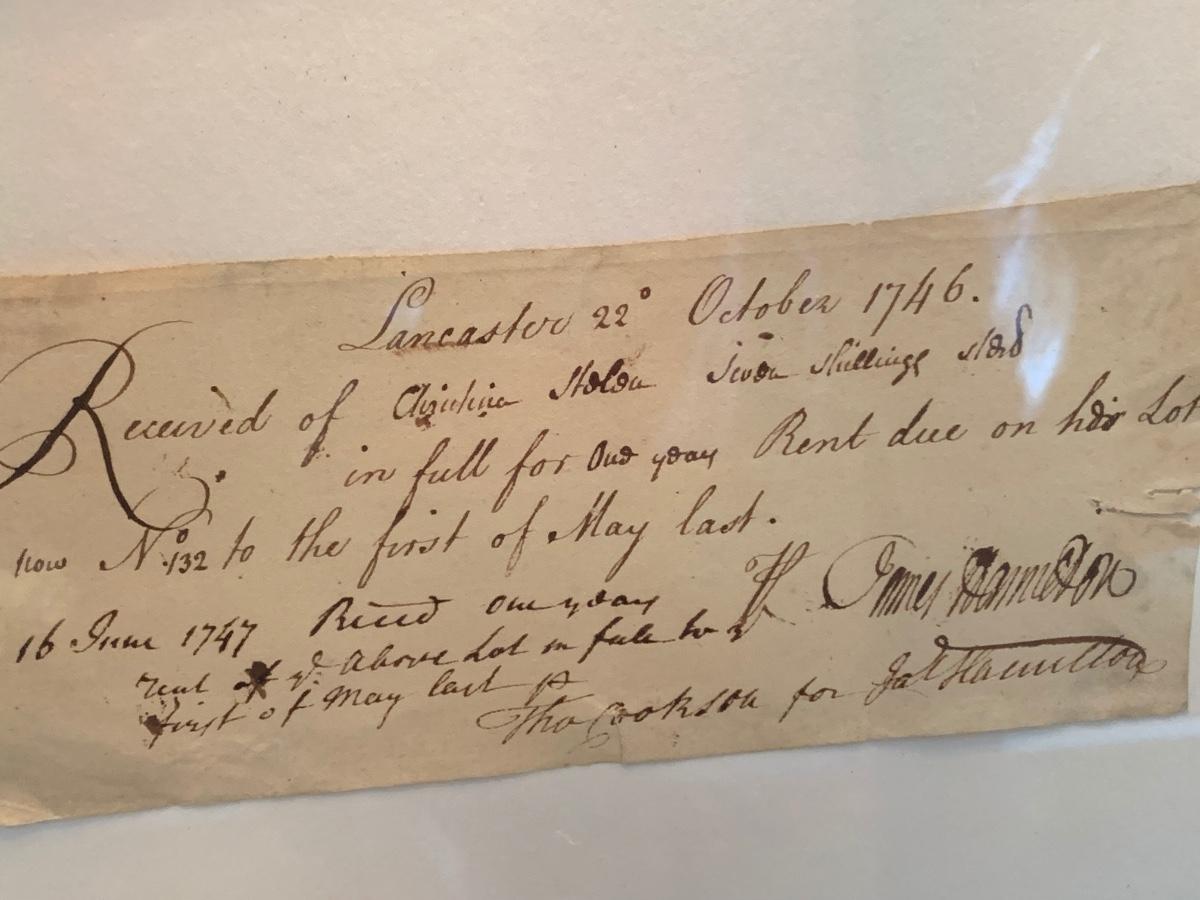 Lancaster 22° October 1746.
Received of Christina Stelen Seven Shillings Ster͏ᵈ
in full for One years Rent due on her Lot
now Nº 132 to the first of May last.
⅌ James Hamilton
16 June 1747 Recd One years
rent of yᵉ Above Lot in full to yᵉ
first of May last ⅌
Tho Cookson for Jaˢ Hamilton